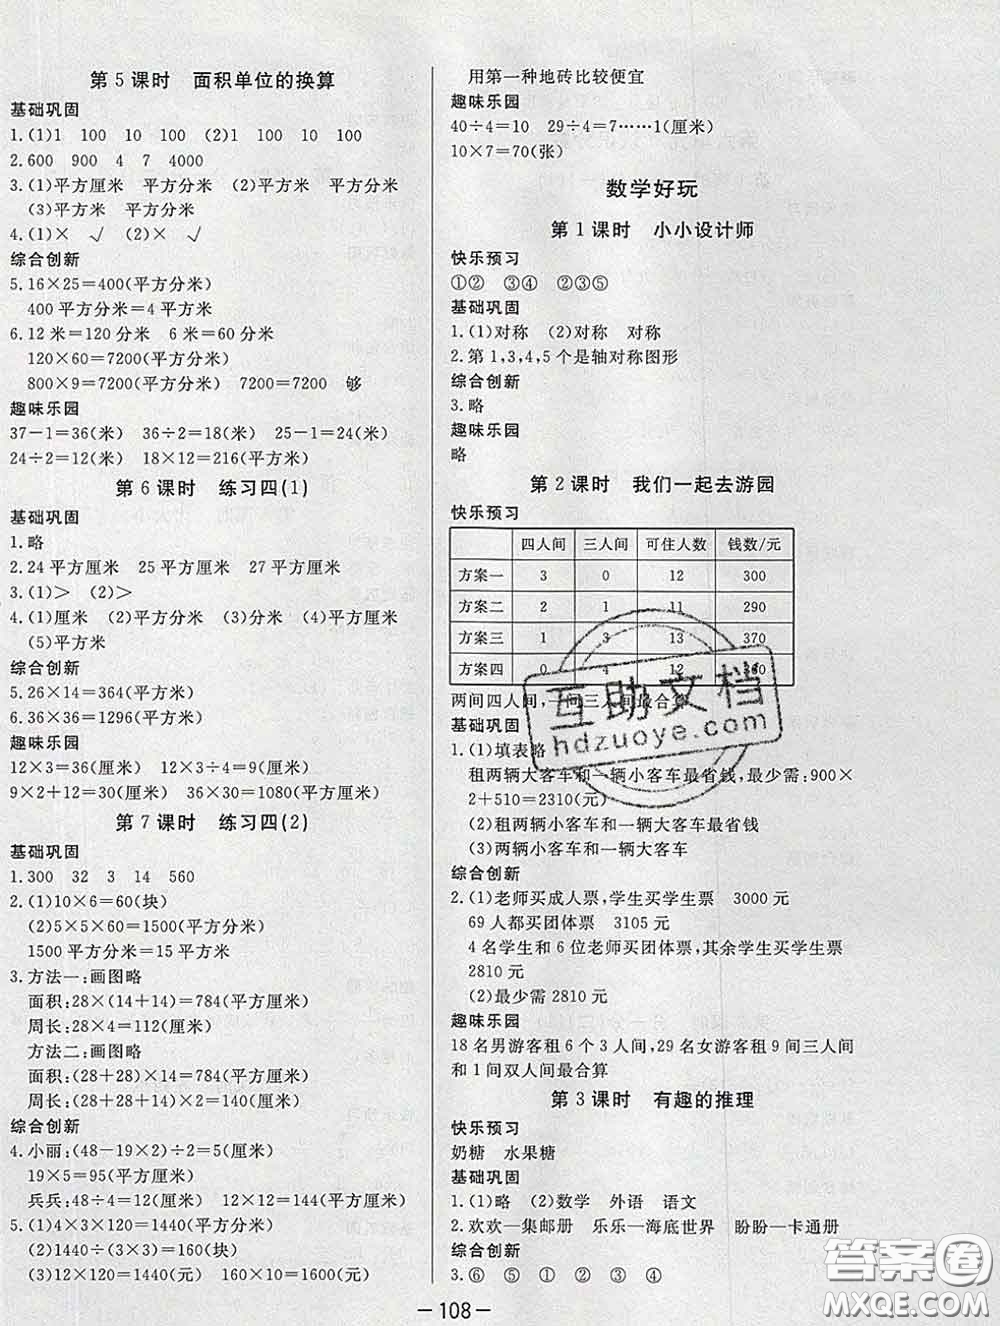 第 5 课时　面积单位的换算
基础巩固
1.(1)1　100　10　100　(2)1　100　10　100
2.600　900　4　7　4000
3.(1)平方厘米　平方分米　(2)平方米　平方分米
(3)平方米　平方分米
4.(1)×　√　(2)×　√
综合创新
5.16×25=400(平方分米)
400 平方分米=4 平方米
6.12 米=120 分米　6 米=60 分米
120×60=7200(平方分米)
800×9=7200(平方分米)　7200=7200　够
趣味乐园
37−1=36(米)　36÷2=18(米)　25−1=24(米)
24÷2=12(米)　18×12=216(平方米)
第 6 课时　练习四(1)
基础巩固
1.略
2.24 平方厘米　25 平方厘米　27 平方厘米
3.(1)>　(2)>
4.(1)厘米　(2)平方分米　(3)分米　(4)平方厘米
(5)平方米
综合创新
5.26×14=364(平方米)
6.36×36=1296(平方米)
趣味乐园
12×3=36(厘米)　12×3÷4=9(厘米)
9×2+12=30(厘米)　36×30=1080(平方厘米)
第 7 课时　练习四(2)
基础巩固
1.300　32　3　14　560
2.(1)10×6=60(块)
(2)5×5×60=1500(平方分米)
1500 平方分米=15 平方米
3.方法一:画图略
面积:28×(14+14)=784(平方厘米)
周长:28×4=112(厘米)
方法二:画图略
面积:(28+28)×14=784(平方厘米)
周长:(28+28+14)×2=140(厘米)
综合创新
4.小丽:(48−19×2)÷2=5(厘米)
19×5=95(平方厘米)
兵兵:48÷4=12(厘米)　12×12=144(平方厘米)
5.(1)4×3×120=1440(平方分米)
(2)1440÷(3×3)=160(块)
(3)12×120=1440(元)　160×10=1600(元)
用第一种地砖比较便宜
趣味乐园
40÷4=10　29÷4=7……1(厘米)
10×7=70(张)
数学好玩
第 1 课时　小小设计师
快乐预习
①②　③④　②③⑤
基础巩固
1.(1)对称　(2)对称　对称
2.第 1,3,4,5 个是轴对称图形
综合创新
3.略
趣味乐园
略
第 2 课时　我们一起去游园
快乐预习
四人间　三人间　可住人数　钱数/元
方案一　3　0　12　300
方案二　2　1　11　290
方案三　1　3　13　370
方案四　0　4　12
两间四人间,一间三人间最合算
基础巩固
1.(1)填表略
租两辆大客车和一辆小客车最省钱,最少需:900×
2+510=2310(元)
(2)租两辆小客车和一辆大客车最省钱
(3)两辆小客车和一辆大客车
综合创新
2.(1)老师买成人票,学生买学生票　3000 元
69 人都买团体票　3105 元
4 名学生和 6 位老师买团体票,其余学生买学生票
2810 元
(2)最少需 2810 元
趣味乐园
18 名男游客租 6 个 3 人间,29 名女游客租 9 间三人间
和 1 间双人间最合算
第 3 课时　有趣的推理
快乐预习
奶糖　水果糖
基础巩固
1.(1)略　(2)数学　外语　语文
2.欢欢—集邮册　乐乐—海底世界　盼盼—卡通册
综合创新
3.⑥　⑤　①　②　③　④
— 108 —
互助文档
hdzuoye.com
答案圈
MXQE.COM